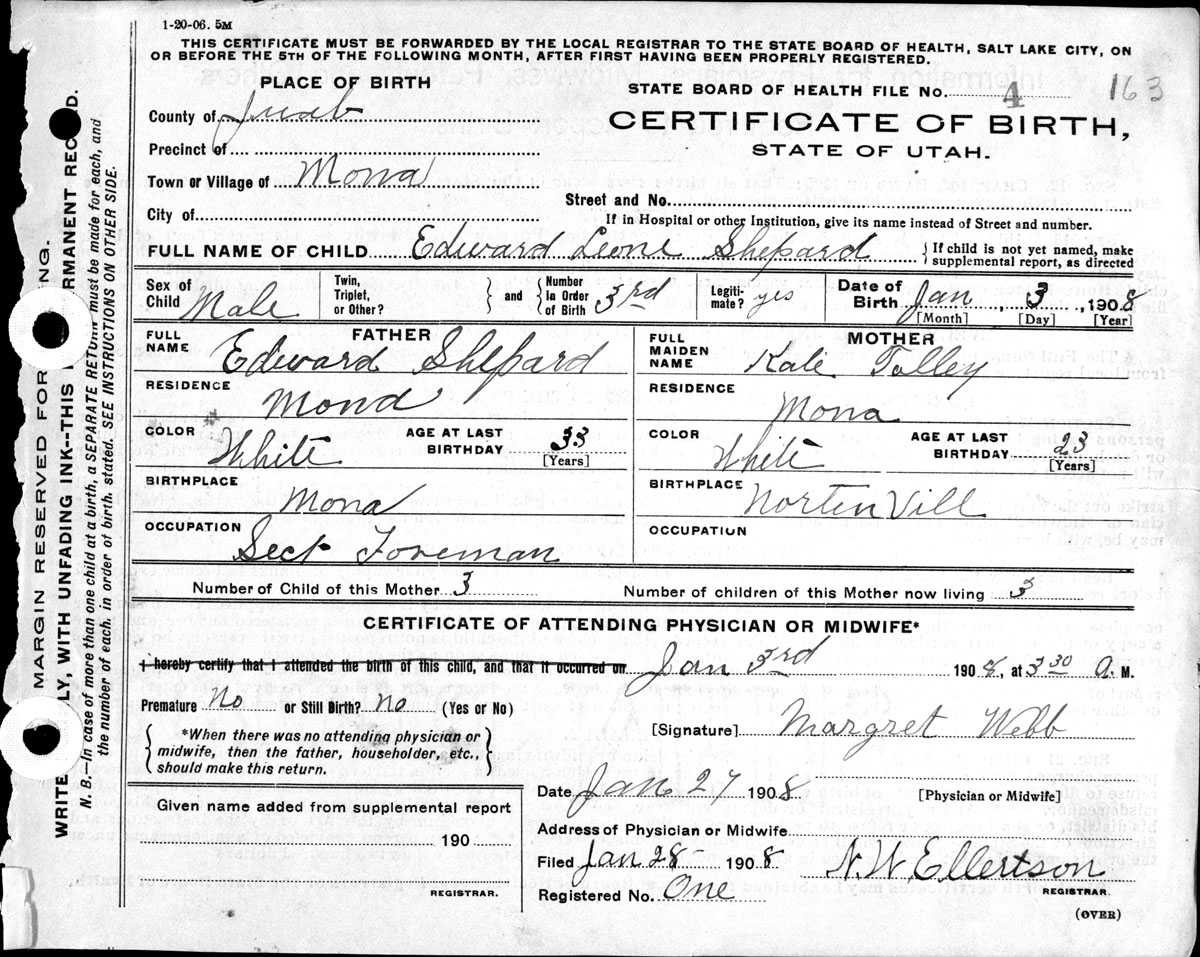 1-20-06. 5M
THIS CERTIFICATE MUST BE FORWARDED BY THE LOCAL REGISTRAR TO THE STATE BOARD OF HEALTH, SALT LAKE CITY, ON
OR BEFORE THE 5TH OF THE FOLLOWING MONTH, AFTER FIRST HAVING BEEN PROPERLY REGISTERED.
PLACE OF BIRTH
STATE BOARD OF HEALTH FILE No. 4 163
County of Juab
CERTIFICATE OF BIRTH,
STATE OF UTAH.
Precinct of
Town or Village of Mona
Street and No.
City of
If in Hospital or other Institution, give its name instead of Street and number.
FULL NAME OF CHILD Edward Leone Shepard {If child is not yet named, make
supplemental report, as directed
Sex of Child Male Twin, Triplet, or Other? } and { Number in Order of Birth 3rd Legiti-mate? yes Date of Birth Jan 3, 1908
[Month] [Day] [Year]
FATHER
FULL NAME Edward Shepard
RESIDENCE Mona
COLOR White AGE AT LAST BIRTHDAY 33 [Years]
BIRTHPLACE Mona
OCCUPATION Sect Foreman
MOTHER
FULL MAIDEN NAME Kate Tolley
RESIDENCE Mona
COLOR White AGE AT LAST BIRTHDAY 23 [Years]
BIRTHPLACE Norten Vill
OCCUPATION
Number of Child of this Mother 3 Number of children of this Mother now living 3
CERTIFICATE OF ATTENDING PHYSICIAN OR MIDWIFE*
I hereby certify that I attended the birth of this child, and that it occurred on Jan 3rd 1908, at 3 30 a. M.
Premature No or Still Birth? No (Yes or No)
*When there was no attending physician or
midwife, then the father, householder, etc.,
should make this return.
[Signature] Margret Webb
Date Jan 27 1908
[Physician or Midwife]
Given name added from supplemental report
190
REGISTRAR.
Address of Physician or Midwife
Filed Jan 28 - 1908 N. W. Ellertson
Registered No. One REGISTRAR.
(OVER)
MARGIN RESERVED FOR NG.
WRITE LY, WITH UNFADING INK--THIS RMANENT REC D.
N. B.—In case of more than one child at a birth, a SEPARATE RETURN must be made for each, and
the number of each, in order of birth, stated. SEE INSTRUCTIONS ON OTHER SIDE.